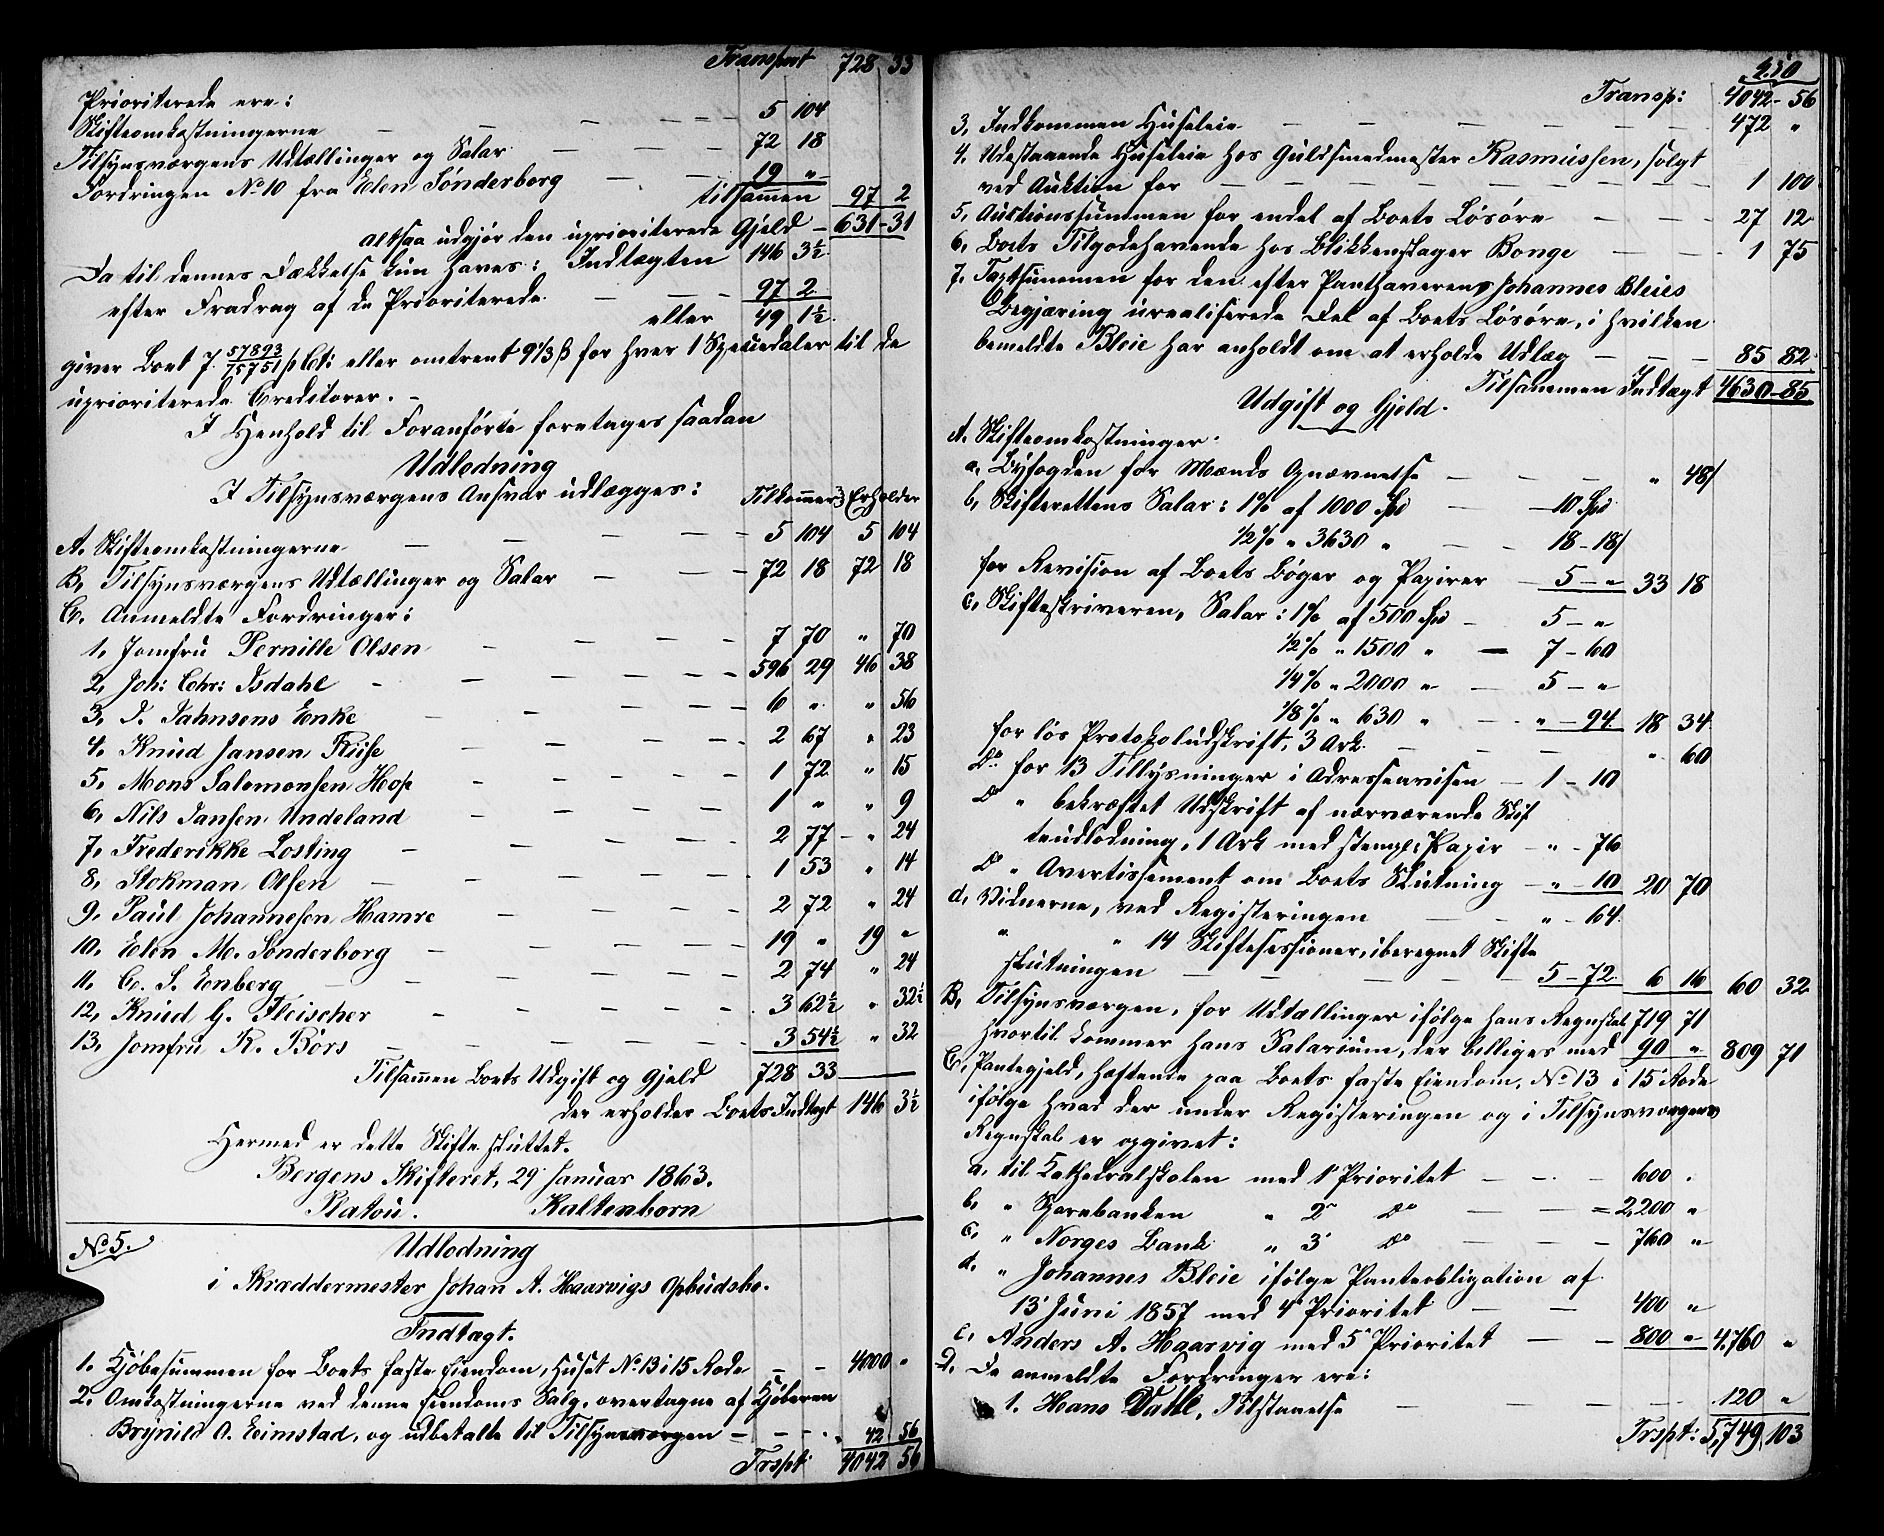 Transport 728 33
Prioriterede ere:
Skifteomkostningerne — — — — 5 104
Tilsynsværgens Udtællinger og Salar — — — 72 18
Fordringen No 10 fra Elen Sønderborg — — 19 "
tilsammen 97 2
altsaa udgjør den uprioriterede Gjeld — 631-31
Da til dennes Dækkelse kun haves: Indtægten 146 3½
efter Fradrag af de Prioriterede — — — 97 2
eller 49 1½
giver Boet 7 57893/75751 pCt: eller omtrent 9⅓ ß for hver 1 Speciedaler til de
uprioriterede Creditorer. —
I Henhold til Foranførte foretages saadan
Udlodning
I Tilsynsværgens Ansvar udlægges: Tilkommer Erholder
A. Skifteomkostningerne — — — — 5 104 5 104
B, Tilsynsværgens Udtællinger og Salar — — — 72 18 72 18
C. Anmeldte Fordringer:
1, Jomfru Pernille Olsen — — — — 7 70 " 70
2, Joh: Chr: Isdahl — — — — 596 29 46 38
3, D. Jahnsens Enke — — — — 6 " " 56
4, Knud Jansen Riise — — — — 2 67 " 23
5, Mons Salomonsen Hop — — — — 1 72 " 15
6, Nils Jansen Undeland — — — — 1 " " 9
7, Frederikke Losting — — — — 2 77 " 24
8, Stokman Olsen — — — — 1 53 " 14
9, Paul Johannesen Hamre — — — — 2 72 " 24
10, Elen M. Sønderborg — — — — 19 " 19 "
11, C. S. Enberg — — — — 2 74 " 24
12, Knud G. Fleischer — — — — 3 62½ " 32½
13, Jomfru K. Børs — — — — 3 54½ " 32
Tilsammen Boets Udgift og Gjeld 728 33
der erholder Boets Indtægt 146 3½
Hermed er dette Skifte sluttet.
Bergens Skifteret, 29 Januar 1863.
Platou. Kaltenborn
No 5. Udlodning
i Skræddermester Johan A. Haarvigs Opbudsbo.
Indtægt.
1. Kjøbesummen for Boets faste Eiendom, Huset No 13 i 15 Rode — — 4000 "
2. Omkostningerne ved denne Eiendoms Salg, overtagne af Kjøberen
Brynild O. Eimstad, og udbetalte til Tilsynsværgen — — — 42 56
Trspt: 4042 56
450
Transp: 4042-56
3, Indkommen Husleie — — — — 472 "
4, Udestaaende Husleie hos Guldsmedmester Rasmussen, solgt
ved Auktion for — — — — 1 100
5, Auctionssummen for endel af Boets Løsøre — — — 27 12
6, Boets Tilgodehavende hos Blikkenslager Bonge — — 1 75
7, Taxtsummen for den efter Panthaverens Johannes Bleies
Begjæring urealiserede Del af Boets Løsøre, i hvilken
bemeldte Bleie har anholdt om at erholde Udlæg — — — 85 82
Tilsammen Indtægt 4630-85
Udgift og Gjeld.
A. Skifteomkostninger.
a, Byfogden for Mænds Opnævnelse — — — " 48/
b, Skifterettens Salar: 1% af 1000 Spd — 10 Spd
½% " 3630 " — 18-18/
for Revision af Boets Bøger og Papirer — 5-" 33 18
c, Skifteskriveren, Salar: 1% af 500 Spd — 5-"
½% " 1500 " — 7-60
¼% " 2000 " — 5-"
⅛% " 630 " — "-94 18 34
for løs Protokoludskrift, 3 Ark — — — " 60
Do for 13 Tillysninger i Adresseavisen — 1-10
Do " bekræftet Udskrift af nærværende Skif
teudlodning, 1 Ark med stempl: Papir — "-76
Do " Avertissement om Boets Slutning — "-10 20 70
d, Vidnerne, ved Registeringen — — "-64
" " 14 Skiftesessioner, iberegnet Skifte
slutningen — — — 5-72 6 16 60 32
B, Tilsynsværgen, for Udtællinger ifølge hans Regnskab 719 71
hvortil kommer hans Salarium, der billiges med 90 " 809 71
C, Pantegjeld, heftende paa Boets faste Eiendom, No 13 i 15 Rode
ifølge hvad der under Registeringen og i Tilsynsværgens
Regnskab er opgivet:
a, til Kathedralskolen med 1 Prioritet — — — 600 .
b, " Sparebanken " 2 Do — — = 2,200 "
c, " Norges Bank " 3 Do — — — 760 "
d, " Johannes Bleie ifølge Panteobligation af
13 Juni 1857 med 4 Prioritet — — 400 "
e, Anders A. Haarvig med 5 Prioritet — — 800 " 4,760 "
D. De anmeldte Fordringer ere:
1. Hans Dahl, Tilstaaelse — — — 120 "
Trspt: 5,749 103